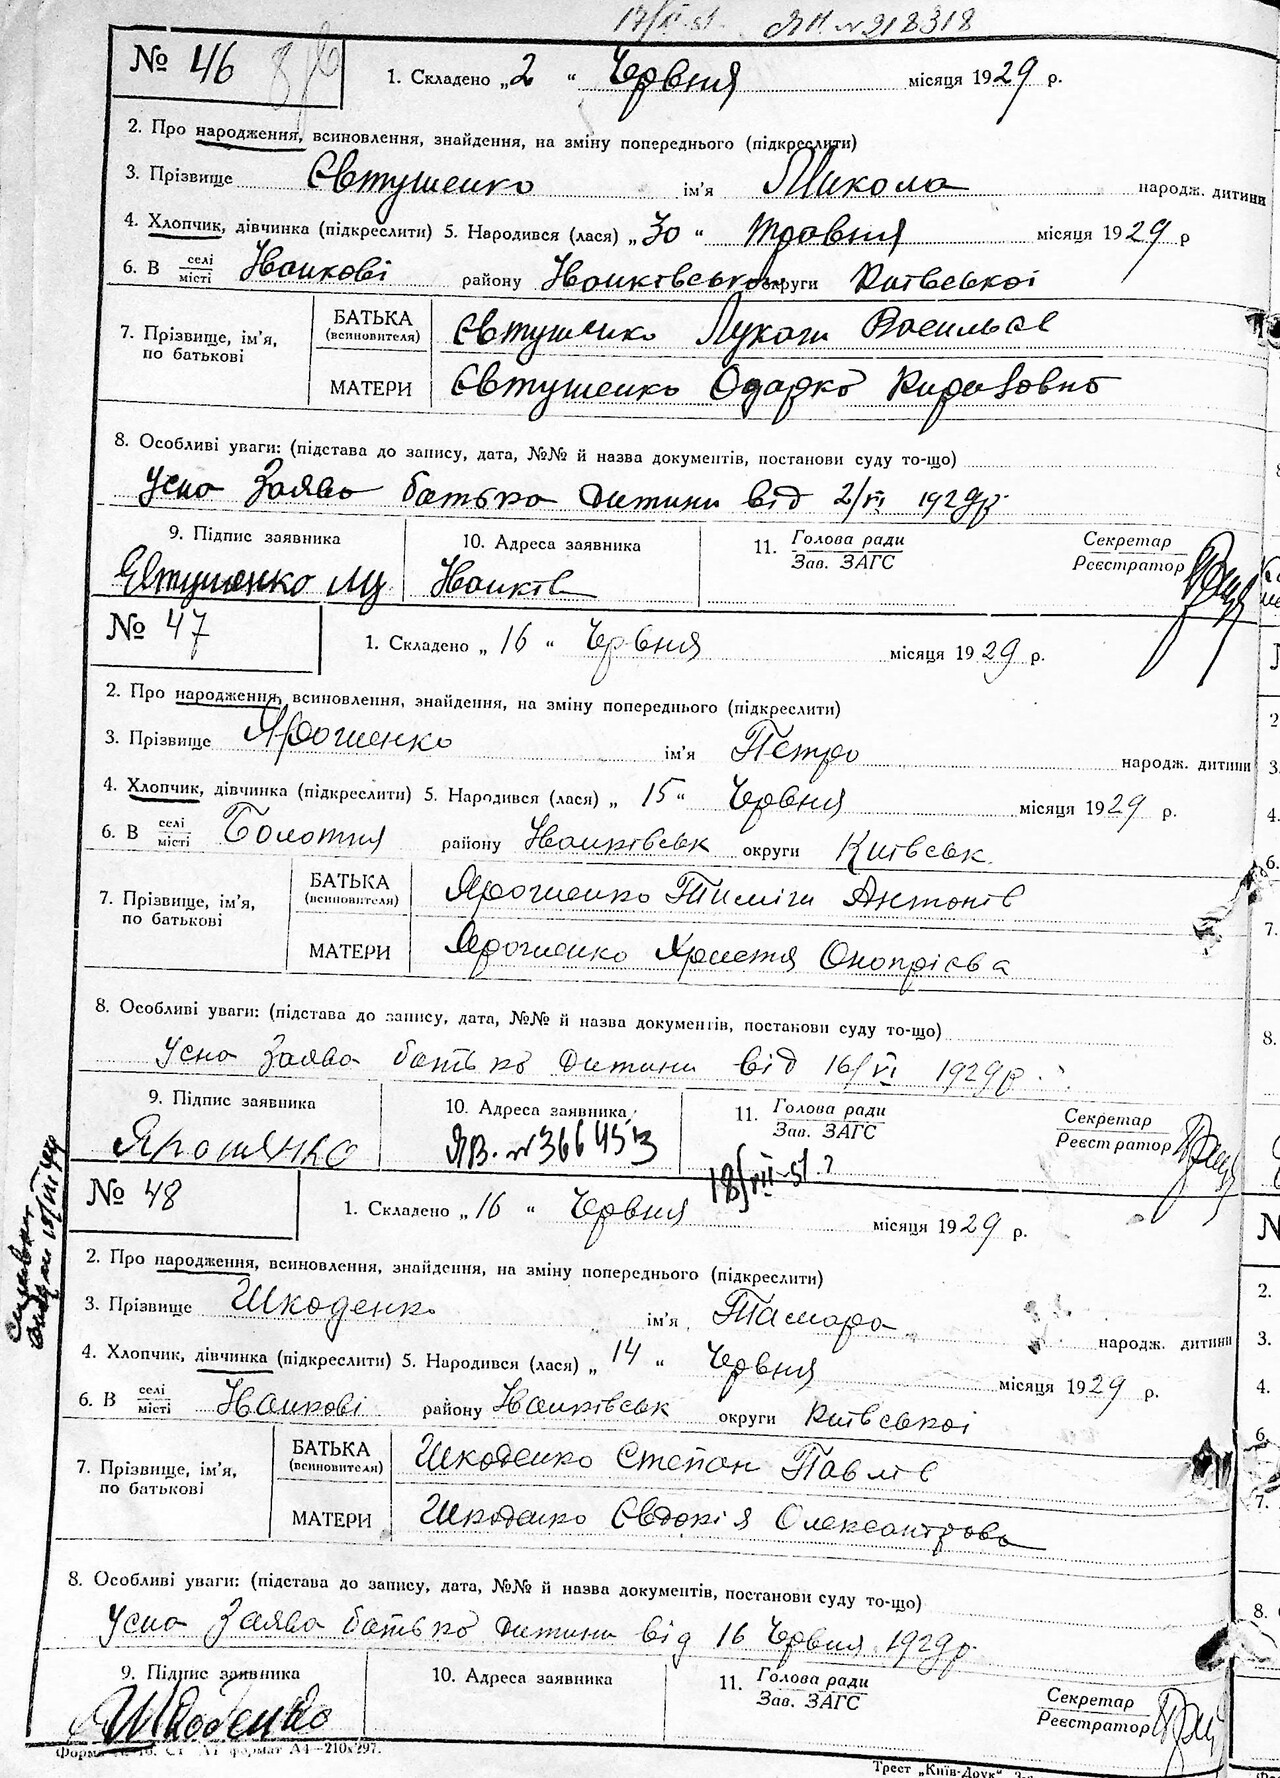 17/ІІ.51. ЯП. № 218318
№ 46
1. Складено „2“ Червня місяця 1929 р.
2. Про народження, всиновлення, знайдення, на зміну попереднього (підкреслити)
3. Прізвище Євтушенко ім'я Микола народж. дитини
4. Хлопчик, дівчинка (підкреслити) 5. Народився (лася) „30“ травня місяця 1929 р
6. В селі місті Іванкові району Іванківського округи Київської
7. Прізвище, ім'я, по батькові
БАТЬКА (всиновителя) Євтушенко Лукаш Васильов
МАТЕРИ Євтушенко Одарка
8. Особливі уваги: (підстава до запису, дата, №№ й назва документів, постанови суду то-що)
Усна Заява батька дитини від 2/VI 1929р.
9. Підпис заявника 10. Адреса заявника 11. Голова ради Зав. ЗАГС Секретар Реєстратор
Євтушенко Лу Іванків
№ 47
1. Складено „16“ Червня місяця 1929 р.
2. Про народження, всиновлення, знайдення, на зміну попереднього (підкреслити)
3. Прізвище Ярошенко ім'я Петро народж. дитини
4. Хлопчик, дівчинка (підкреслити) 5. Народився (лася) „15“ Червня місяця 1929 р.
6. В селі місті Болотня району Іванківськ округи Київськ.
7. Прізвище, ім'я, по батькові
БАТЬКА (всиновителя) Ярошенко Тиміш Антонів
МАТЕРИ Ярошенко Христя Онопрієва
8. Особливі уваги: (підстава до запису, дата, №№ й назва документів, постанови суду то-що)
Усна Заява батька дитини від 16/VI 1929р.
9. Підпис заявника 10. Адреса заявника 11. Голова ради Зав. ЗАГС Секретар Реєстратор
Ярошянко ЯВ. № 366453
18/VII-51.
№ 48
1. Складено „16“ Червня місяця 1929 р.
2. Про народження, всиновлення, знайдення, на зміну попереднього (підкреслити)
3. Прізвище Шкоденко ім'я Тамара народж. дитини
4. Хлопчик, дівчинка (підкреслити) 5. Народився (лася) „14“ Червня місяця 1929 р.
6. В селі місті Іванкові району Іванківськ округи Київської
7. Прізвище, ім'я, по батькові
БАТЬКА (всиновителя) Шкоденко Степан Павлів
МАТЕРИ Шкоденко Євдокія Олександрова
8. Особливі уваги: (підстава до запису, дата, №№ й назва документів, постанови суду то-що)
Усна Заява батька дитини від 16 Червня 1929р.
9. Підпис заявника 10. Адреса заявника 11. Голова ради Зав. ЗАГС Секретар Реєстратор
Шкоденко
формат А4—210х297.
Трест „Київ-Друк“